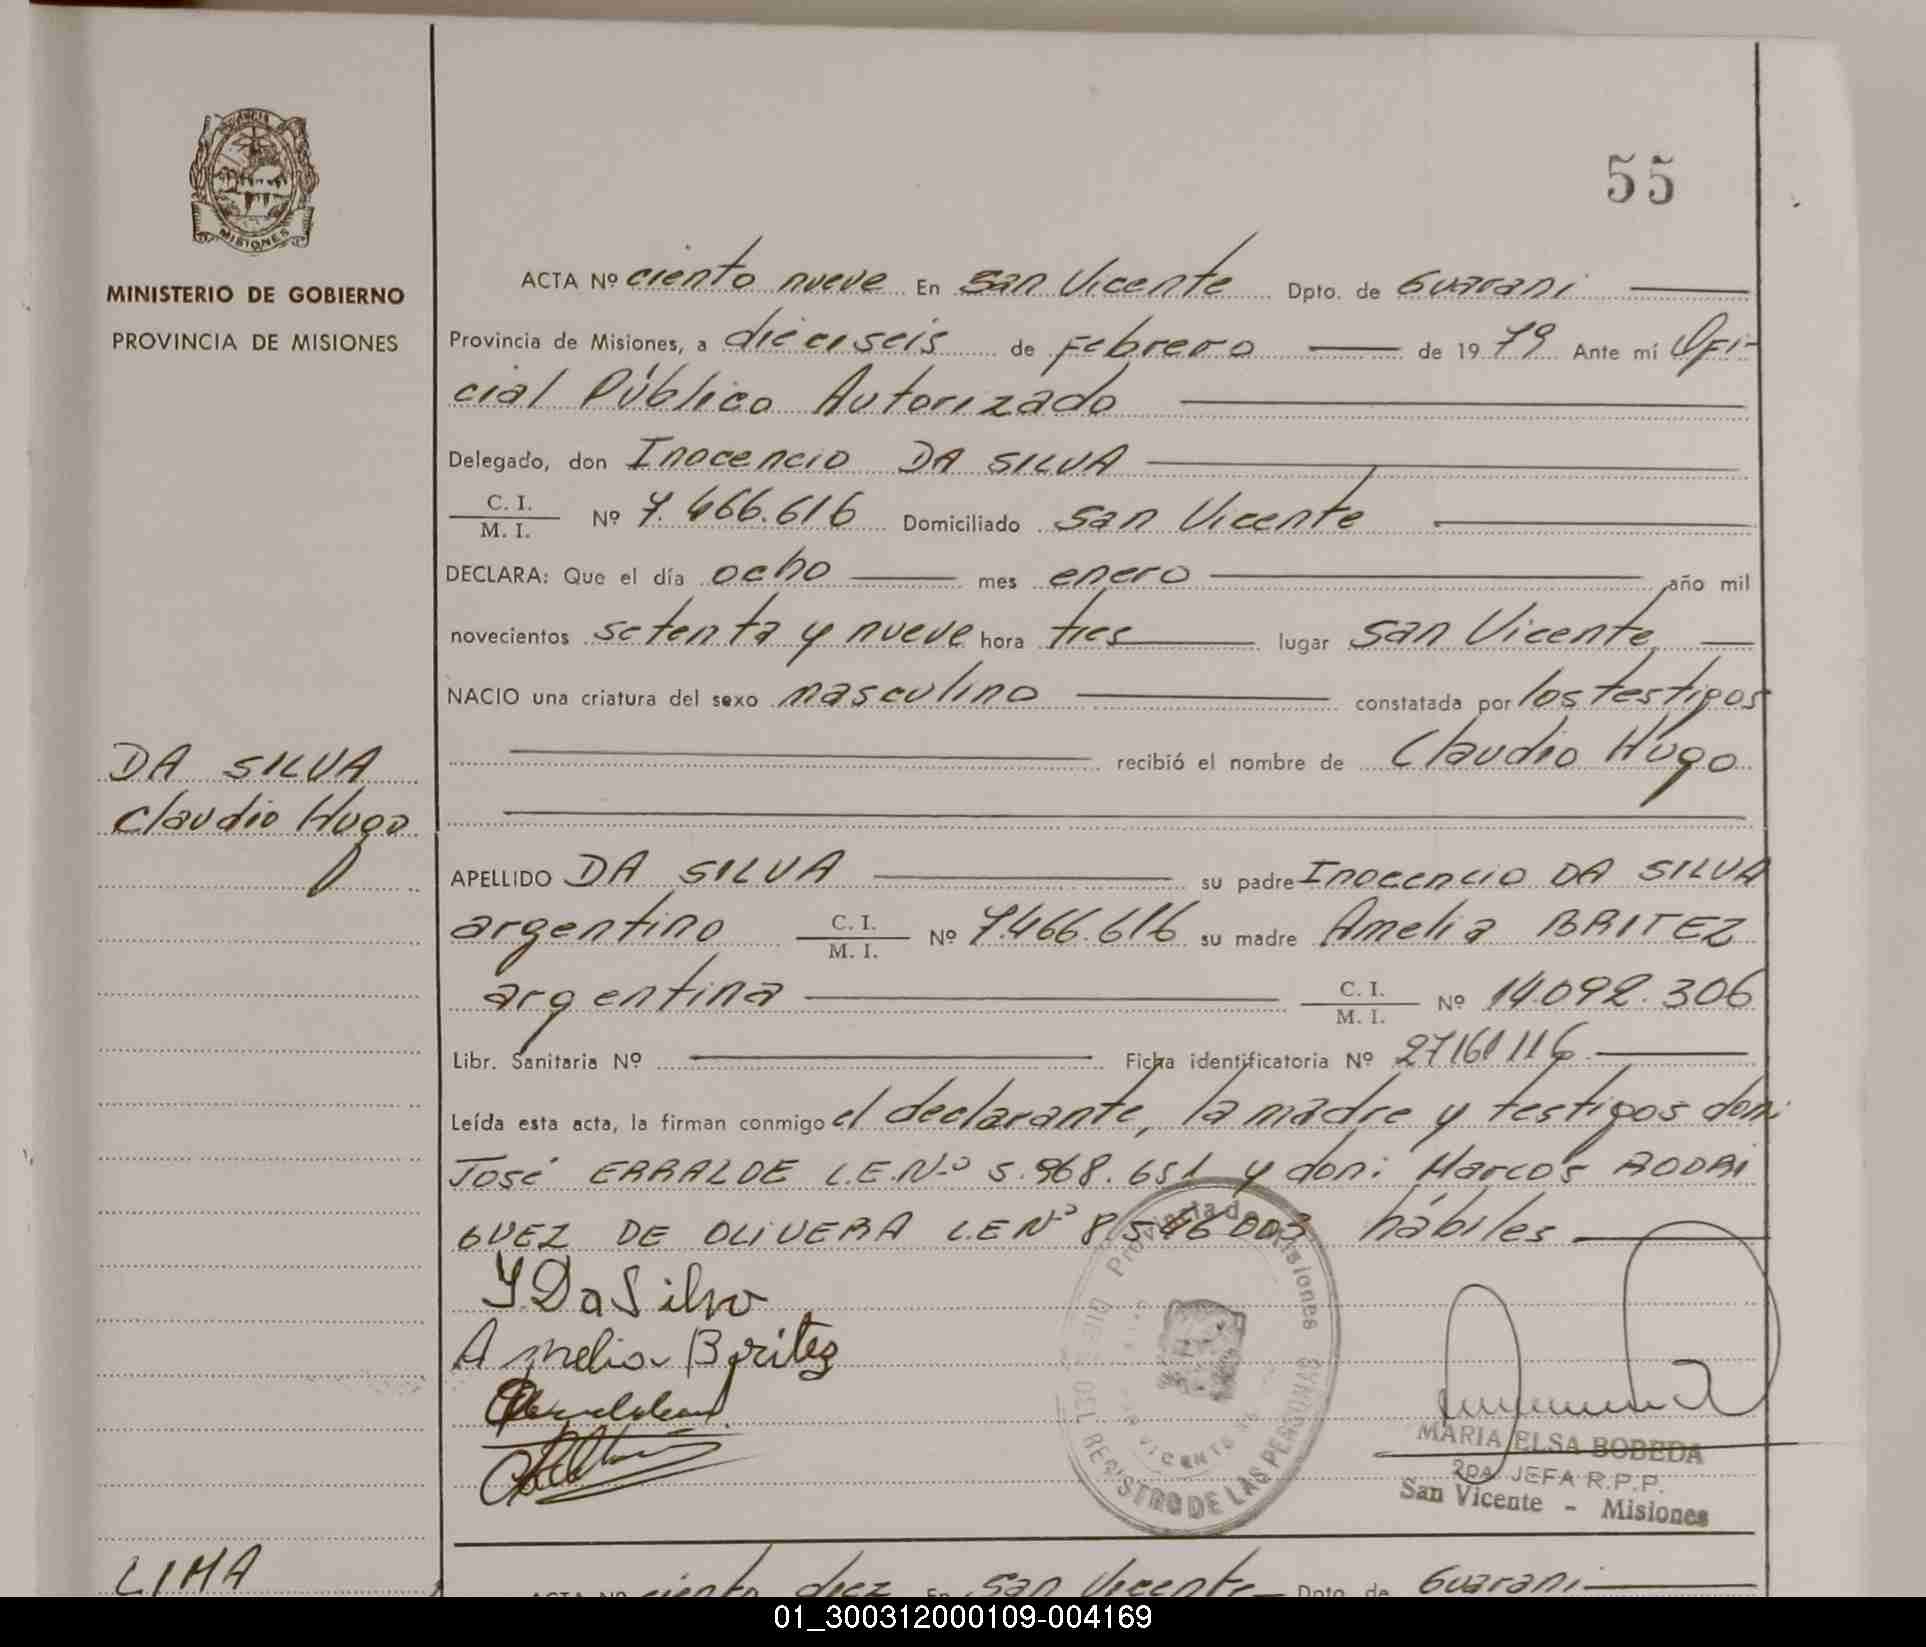 55
PROVINCIA
MISIONES
MINISTERIO DE GOBIERNO
PROVINCIA DE MISIONES
ACTA Nº ciento nueve En San Vicente Dpto. de Guarani
Provincia de Misiones, a dieciseis de Febrero de 1979 Ante mí Ofi-
cial Público Autorizado
Delegado, don Inocencio DA SILVA
C. I.
M. I. Nº 7.466.616 Domiciliado San Vicente
DECLARA: Que el día ocho mes enero año mil
novecientos setenta y nueve hora tres lugar San Vicente
NACIO una criatura del sexo masculino constatada por los testigos
recibió el nombre de Claudio Hugo
DA SILVA
Claudio Hugo
APELLIDO DA SILVA su padre Inocencio DA SILVA
argentino C. I. M. I. Nº 7.466.616 su madre Amelia BRITEZ
argentina C. I. M. I. Nº 14.092.306
Libr. Sanitaria Nº Ficha identificatoria Nº 27161116
Leída esta acta, la firman conmigo el declarante, la madre y testigos don:
José ERRALDE L.E.Nº 5.968.651 y don: Marcos RODRI
GUEZ DE OLIVERA L.E Nº 8.546003 hábiles
Y Da Silva
Amelia Britez
Provincia de Misiones
DEL REGISTRO DE LAS PERSONAS
SAN VICENTE
MARIA ELSA BOBEDA
2DA. JEFA R.P.P.
San Vicente - Misiones
LIMA
ACTA Nº ciento diez En San Vicente Dpto. de Guarani
01_300312000109-004169